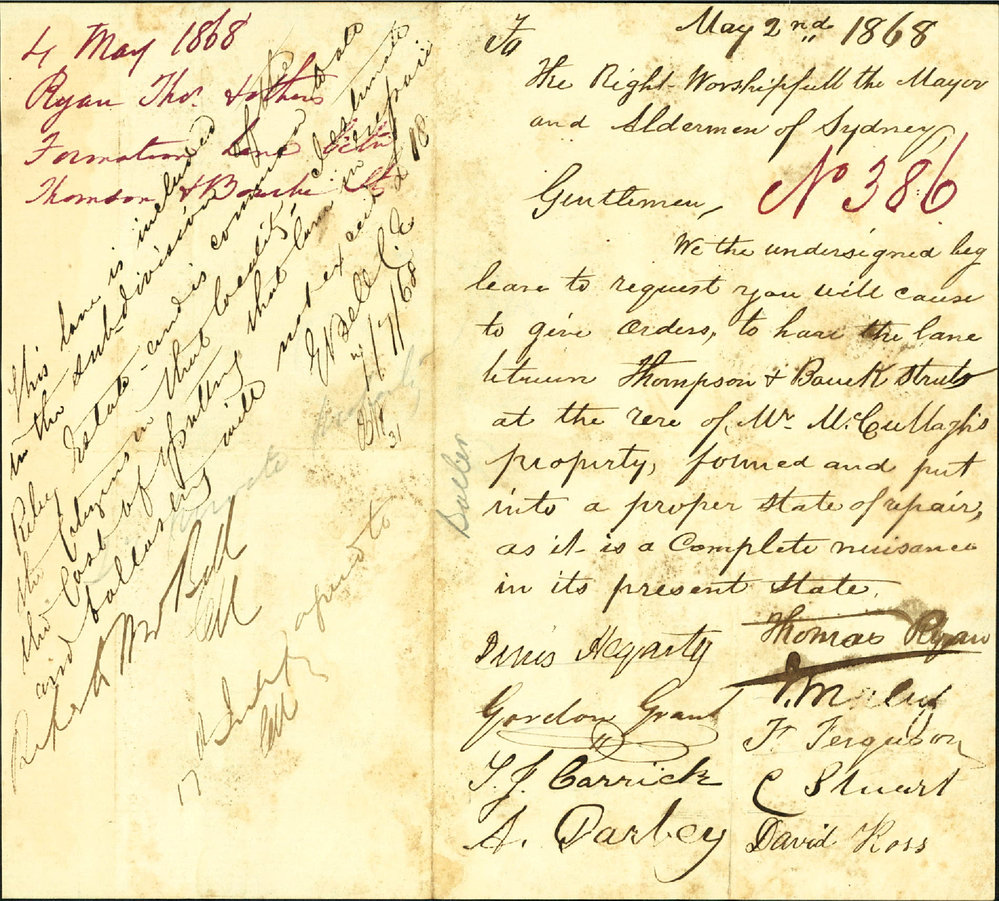 4 May 1868
Ryan Thos. & others
Formation Lane betn
Thomson & Bourke St
This lane is included
in the sub-division of the
Riley Estate - and is common to all
the lanes in that locality -
the cost of putting that lane in repair
and ballasting will not exceed £ 18
E Bell C.E
Refer to Mr Bell
agreed to
May 2nd 1868
To
The Right Worshipfull the Mayor
and Aldermen of Sydney
No 386
Gentlemen,
We the undersigned beg
leave to request you will cause
to give orders, to have the lane
between Thompson & Bourk Streets
at the rere of Mr. McCullagh's
property, formed and put
into a proper state of repair,
as it is a Complete nuisance
in its present state.
Thomas Ryan
Dinis Hegarty
Gordon Grant
F. Ferguson
T. J. Carrick
C Stuart
A. Darbey
David Ross